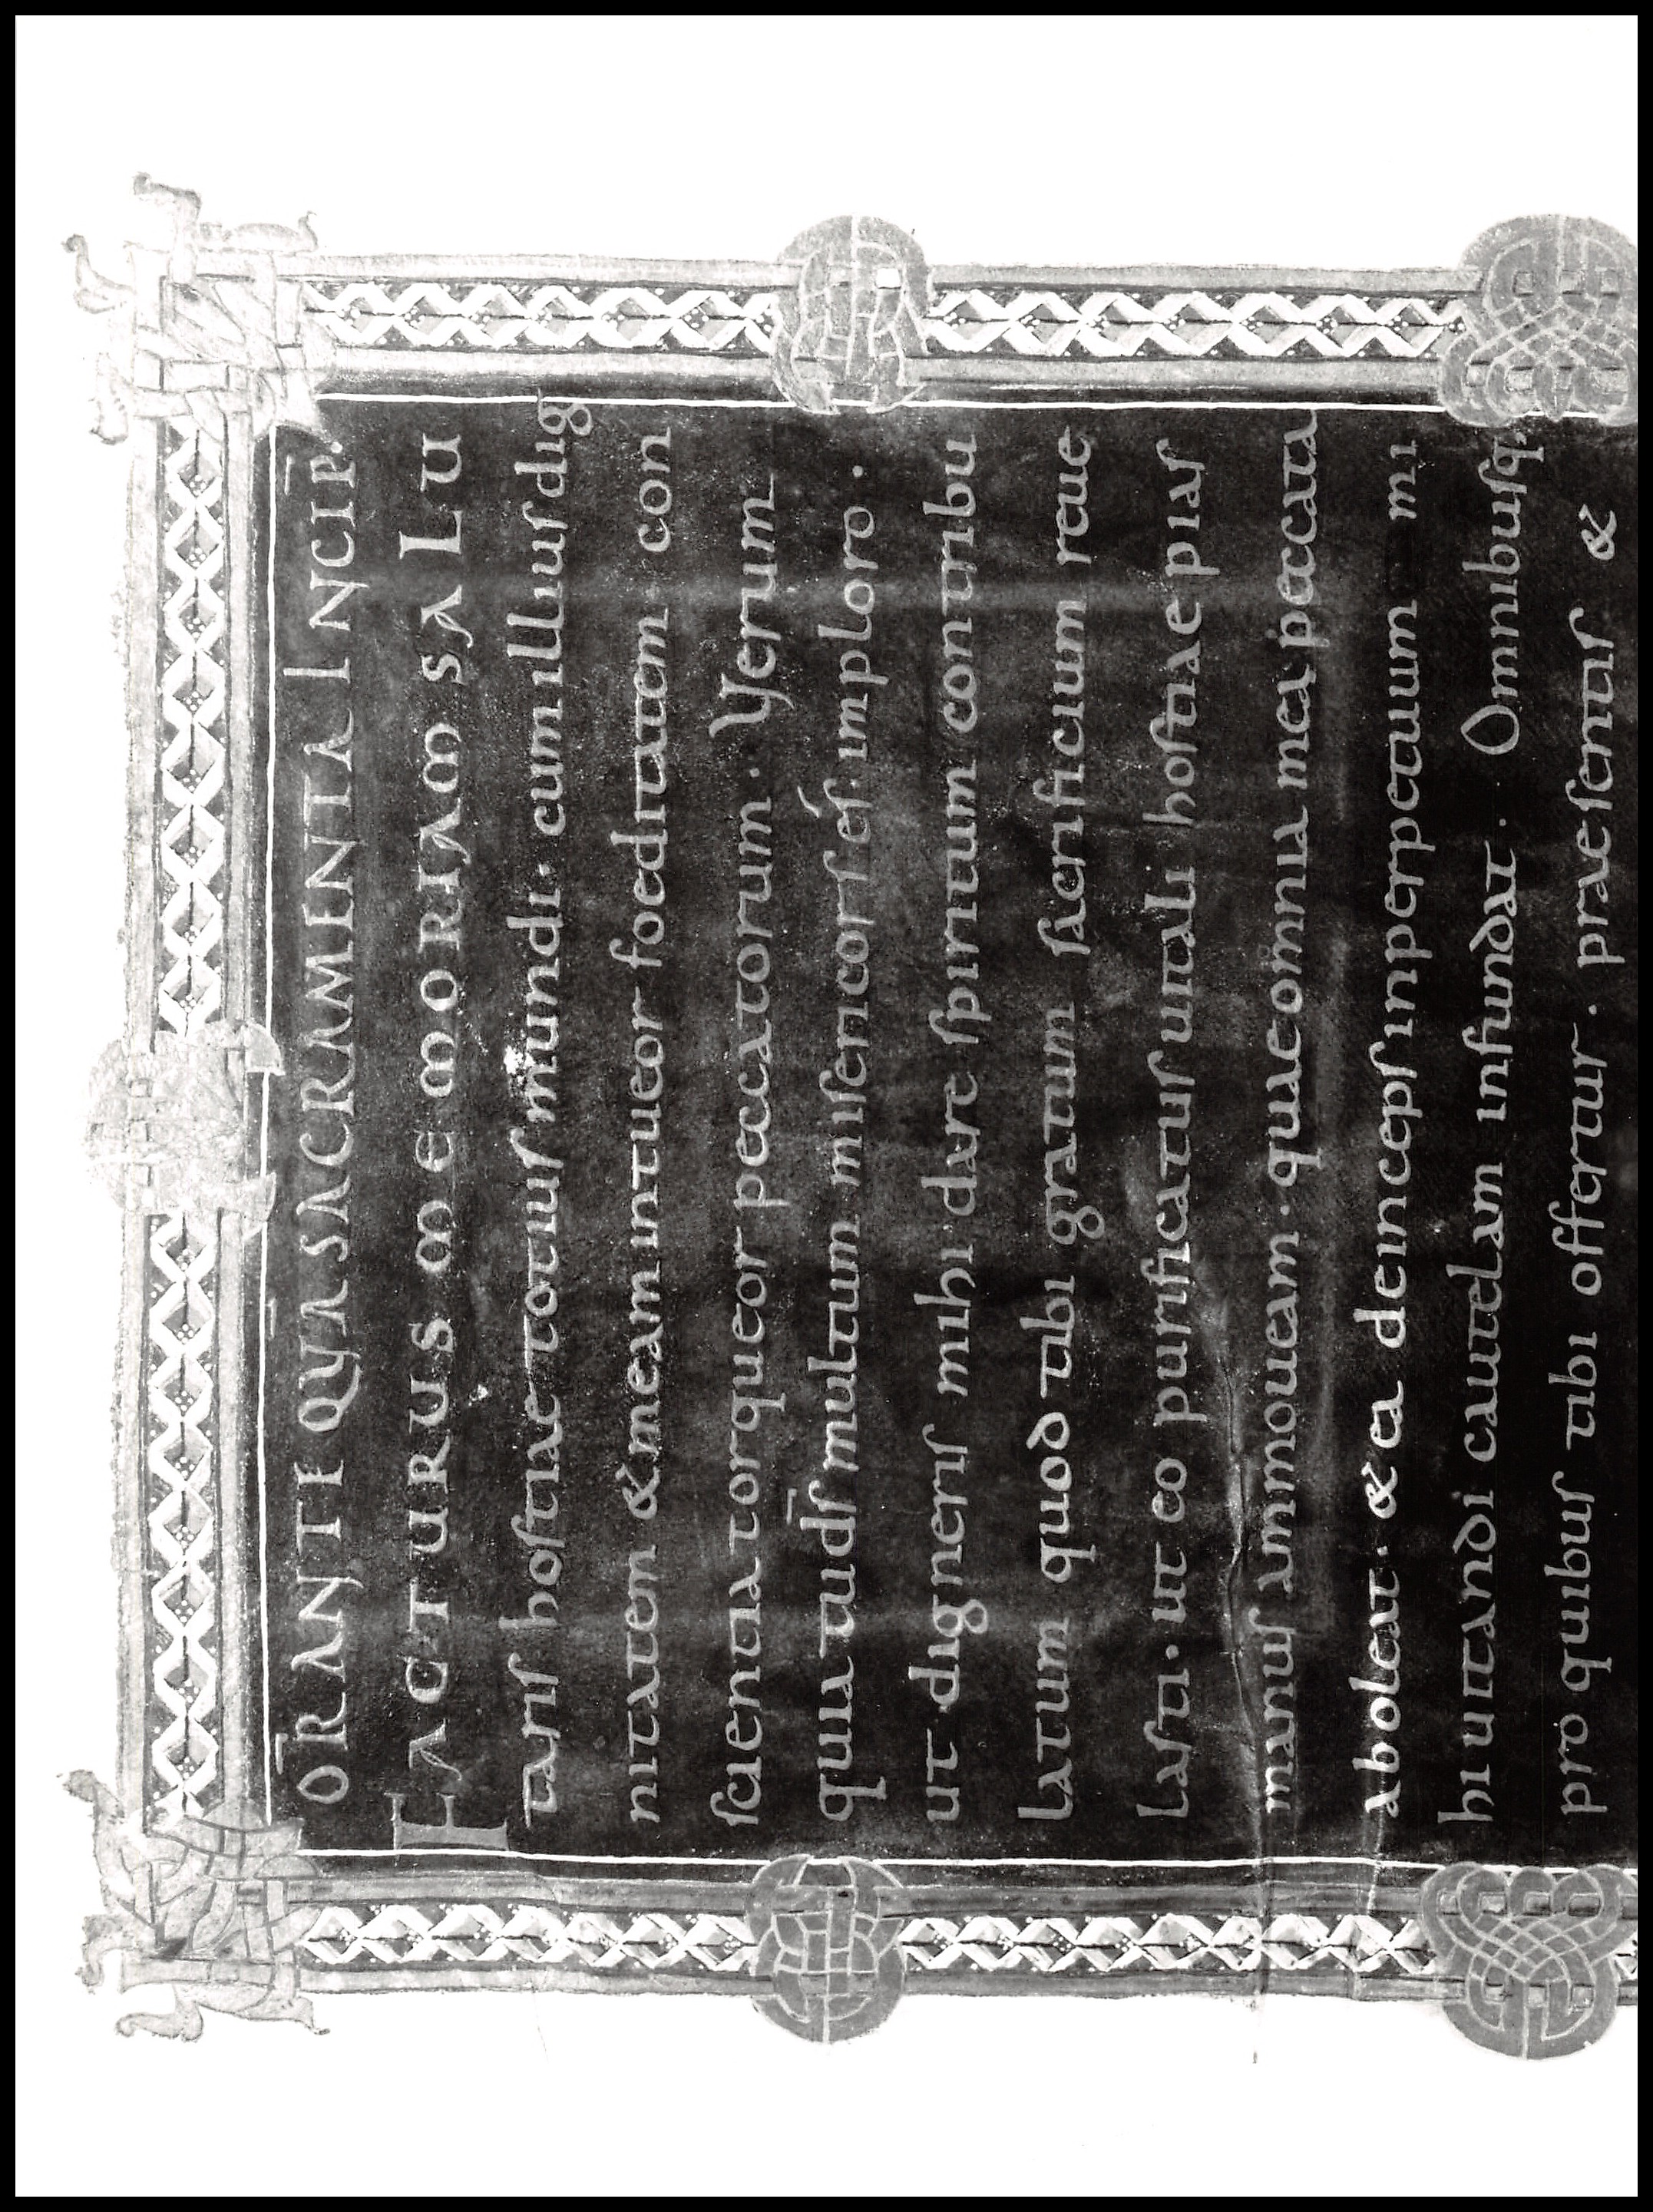 ŌRANT̄ QUASACRAMENTA INCIP̄.
FACTURUS MEMORIAM SALU
taris hostiae totius mundi. cumillius dig
nitatem & meam intueor foeditatem. con
scientia torqueor peccatorum. Verum
quia tu d̄s multum misericors es. imploro.
ut digneris mihi dare spiritum contribu
latum quod tibi gratum sacrificium reue
lasti. ut eo purificatus uitali hostiae pias
manus ammoueam. quae omnia mea peccata
aboleat. & ea deinceps inperpetuum mi
hi uitandi cautelam infundat. Omnibusq;
pro quibus tibi offertur. praesentis &